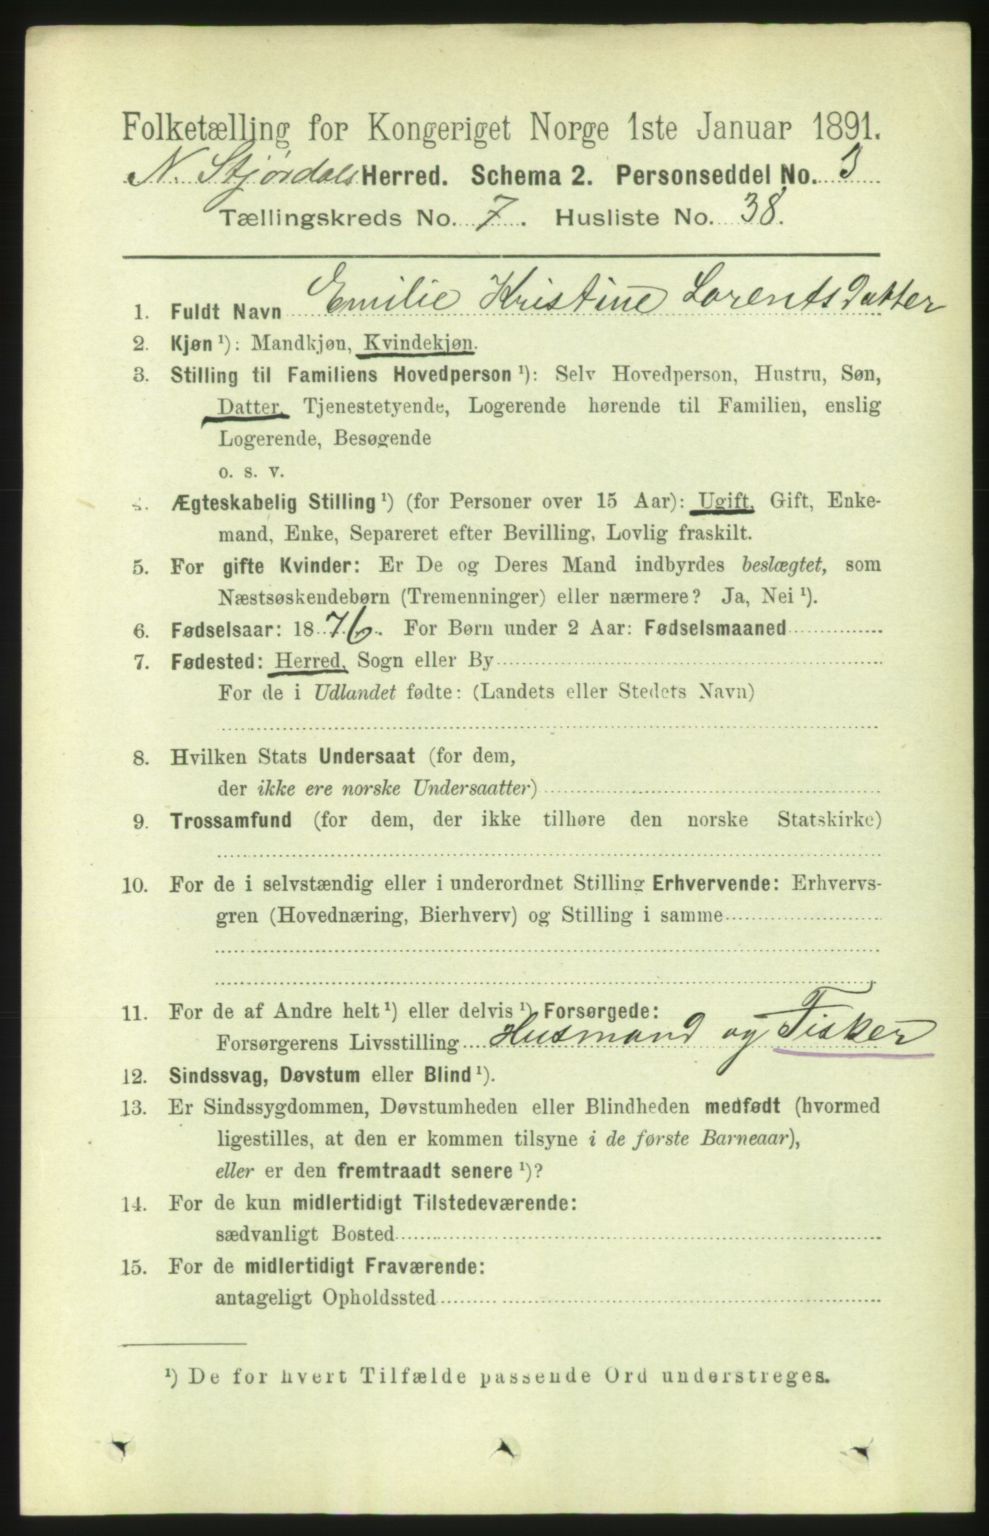 Folketælling for Kongeriget Norge 1ste Januar 1891.
N. Stjørdals Herred. Schema 2. Personseddel No. 3
Tællingskreds No. 7. Husliste No. 38.
1. Fuldt Navn Emilie Kristine Lorentsdatter
2. Kjøn ¹): Mandkjøn, Kvindekjøn.
3. Stilling til Familiens Hovedperson ¹): Selv Hovedperson, Hustru, Søn,
Datter, Tjenestetyende, Logerende hørende til Familien, enslig
Logerende, Besøgende
o. s. v.
4. Ægteskabelig Stilling ¹) (for Personer over 15 Aar): Ugift, Gift, Enke-
mand, Enke, Separeret efter Bevilling, Lovlig fraskilt.
5. For gifte Kvinder: Er De og Deres Mand indbyrdes beslægtet, som
Næstsøskendebørn (Tremenninger) eller nærmere? Ja, Nei ¹).
6. Fødselsaar: 1876. For Børn under 2 Aar: Fødselsmaaned
7. Fødested: Herred, Sogn eller By
For de i Udlandet fødte: (Landets eller Stedets Navn)
8. Hvilken Stats Undersaat (for dem,
der ikke ere norske Undersaatter)
9. Trossamfund (for dem, der ikke tilhøre den norske Statskirke)
10. For de i selvstændig eller i underordnet Stilling Erhvervende: Erhvervs-
gren (Hovednæring, Bierhverv) og Stilling i samme
11. For de af Andre helt ¹) eller delvis ¹) Forsørgede:
Forsørgerens Livsstilling Husmand og Fisker
12. Sindssvag, Døvstum eller Blind ¹).
13. Er Sindssygdommen, Døvstumheden eller Blindheden medfødt (hvormed
ligestilles, at den er kommen tilsyne i de første Barneaar),
eller er den fremtraadt senere ¹)?
14. For de kun midlertidigt Tilstedeværende:
sædvanligt Bosted
15. For de midlertidigt Fraværende:
antageligt Opholdssted
¹) De for hvert Tilfælde passende Ord understreges.